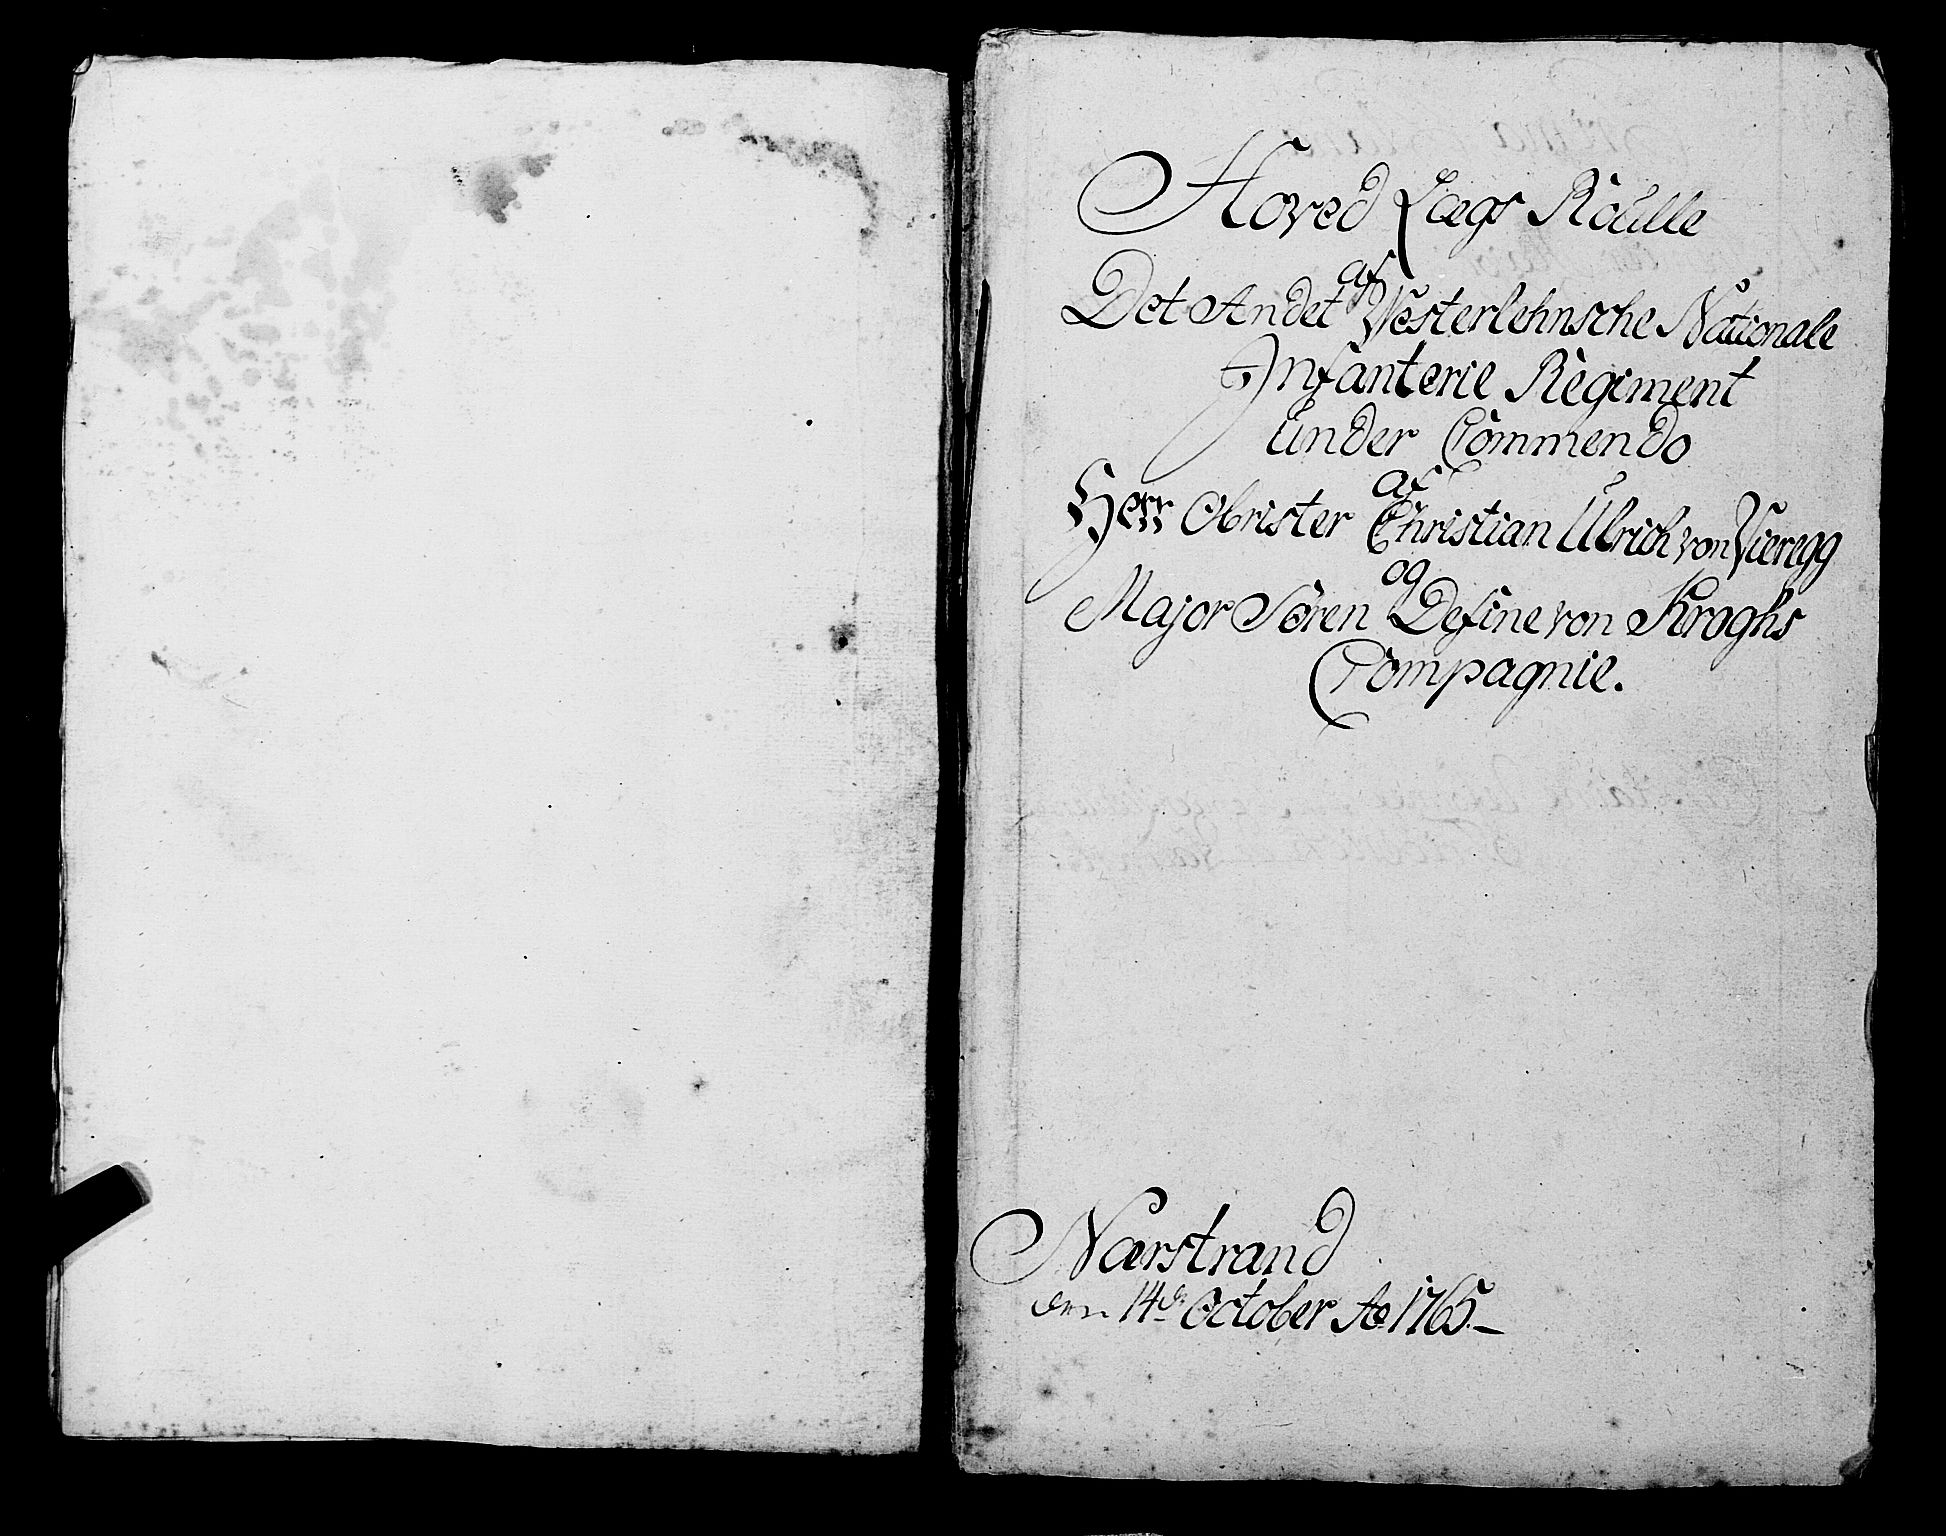 Hoved Lægs Roulle
af
Det Andet Vesterlehnsche Nationale
Infanterie Regiment
under Commendo
af
Herr Obrister Christian Ulrich von Vieregg
og
Major Søren Define von Kroghs
Compagnie.
Nærstrand
den 14de October Ao 1765